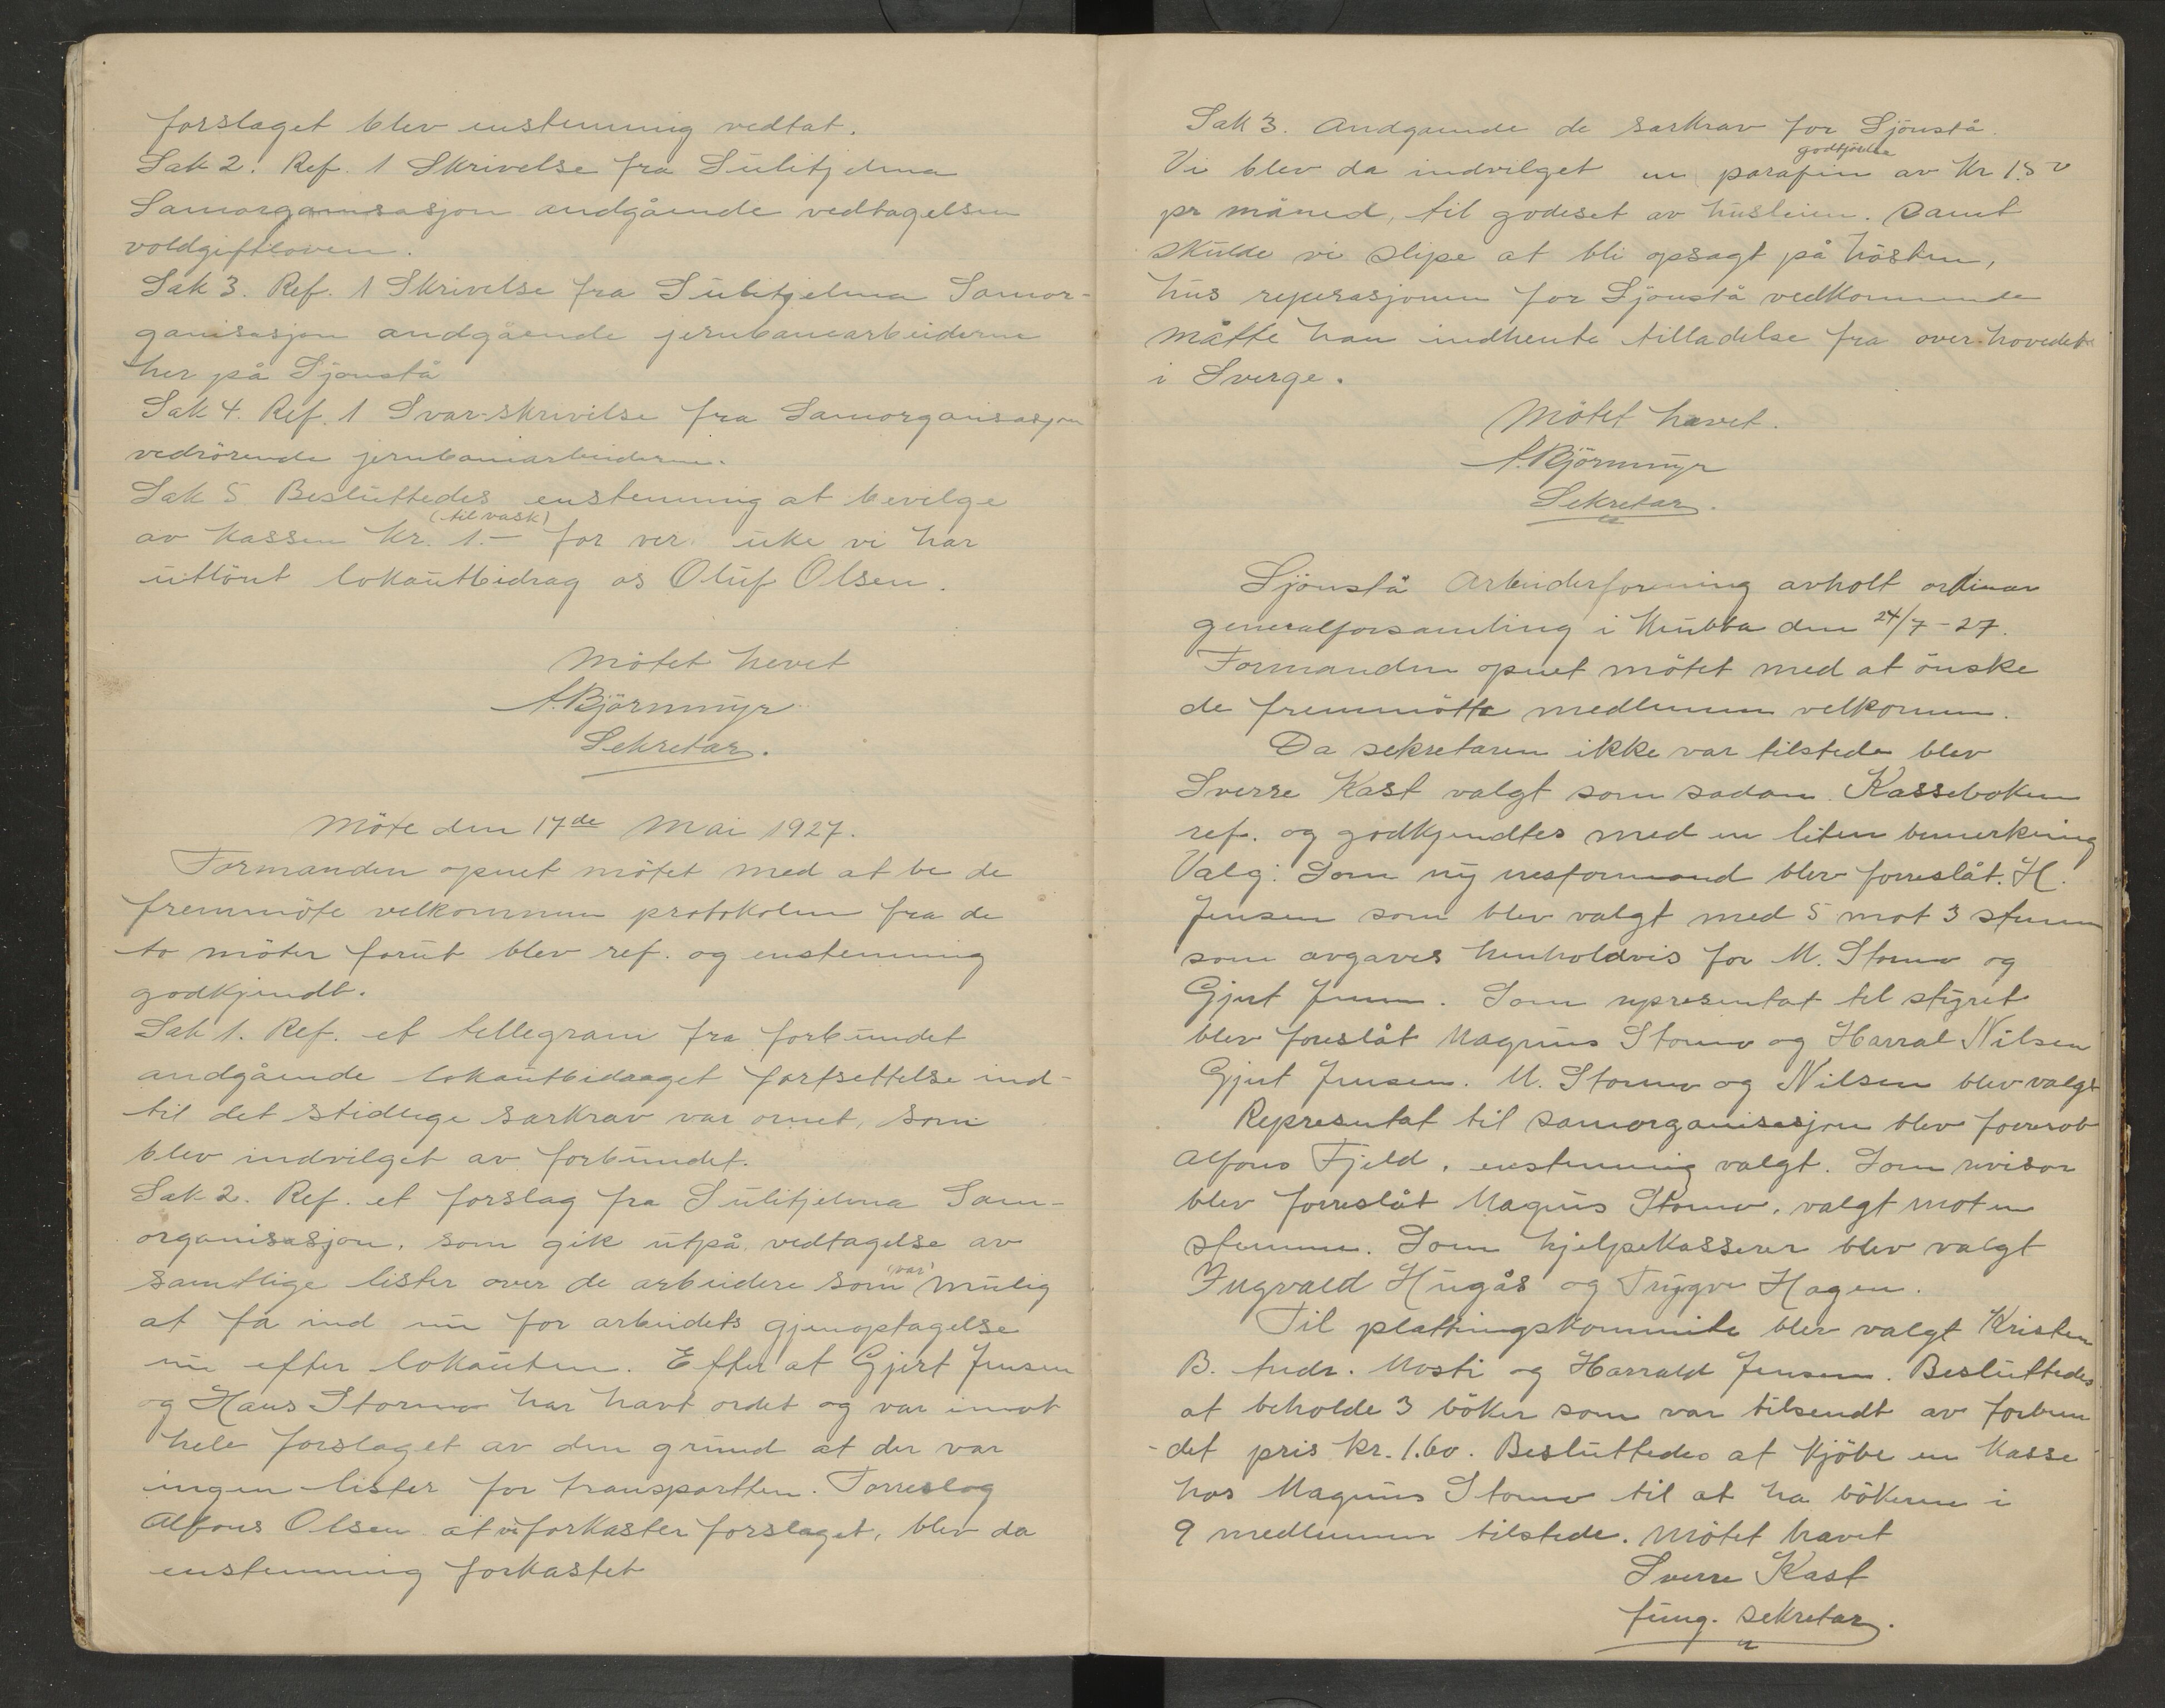 forslaget blev enstemmig vedtat.
Sak 2. Ref. 1 Skrivelse fra Sulitjelma
Samorganisasjon andgående vedtagelsen
voldgiftloven.
Sak 3. Ref. 1 Skrivelse fra Sulitjelma Samor-
ganisasjon andgående jernbanearbeiderne
her på Sjönstå
Sak 4. Ref. 1 Svar-skrivelse fra Samorganisasjon
vedrörende jernbanearbeiderne.
Sak 5 Besluttedes enstemmig at bevilge
(til vask)
av kassen Kr. 1.- for ver uke vi har
utlönt lokautbidrag os Oluf Olsen.
Mötet hevet
A. Björnmyr
Sekretær.
Möte den 17de Mai 1927.
Formanden opnet mötet med at be de
fremmöte velkommen protokolen fra de
to möter forut blev ref. og enstemmig
godkjendt.
Sak 1. Ref. et tellegram fra forbundet
andgående lokautbidraget fortsettelse ind-
til det stedlige særkrav var ornet, som
blev indvilget av forbundet.
Sak 2. Ref. et forslag fra Sulitjelma Sam-
organisasjon, som gik utpå vedtagelse av
(var)
samtlige lister over de arbeidere som mulig
at få ind nu for arbeidets gjenoptagelse
nu efter lokauten. Efter at Gjert Jensen
og Hans Stormo har havt ordet og var imot
hele forslaget av den grund at der var
ingen lister for transportten. Forreslog
Alfons Olsen at vi forkaster forslaget, blev da
enstemmig forkastet
Sak 3. Andgaende de særkrav for Sjönstå.
godtjörelse
Vi blev da indvilget en parafin av Kr 1.50
pr måned, til godeset av husleien. Samt
skulde vi slipe at bli opsagt på hösten,
hus reperasjonen for Sjönstå vedkommende
måtte han indhente tilladelse fra over-hovedet
i Sverge.
Mötet hævet.
A. Björnmyr
Sekretær.
Sjönstå Arbeiderforening avholt ordinær
generalforsamling i Krubba den 24/7-27.
Formanden opnet mötet med at önske
de fremmötte medlemmer velkommen.
Da sekretæren ikke var tilstede blev
Sverre Kast valgt som sadan. Kasseboken
ref. og godkjendtes med en liten bemerkning
Valg: Som ny nesformand blev forreslåt. H.
Jensen som blev valgt med 5 mot 3 stemm
som avgaves henholdvis for M. Stormo og
Gjert Jensen. Som representat til styret
blev foreslåt Magnus Stormo og Harral Nilsen
Gjert Jensen. M. Stormo og Nilsen blev valgt
Representat til samorganisasjon blev
Alfons Fjeld, enstemmig valgt. Som revisor
blev forreslåt Magnus Stormo, valgt mot en
stemme. Som hjelpekasserer blev valgt
Ingvald Hugås og Trygve Hagen.
Til plattingskommite blev valgt Kristen
B. Andr. Mosti og Harrald Jensen. Besluttedes
at beholde 3 böker som var tilsendt av forbun
-det pris kr. 1.60. Besluttedes at kjöbe en kasse
hos Magnus Stormo til at ha bökerne i
9 medlemmer tilstede. Mötet hævet
Sverre Kast
fung. sekretær.